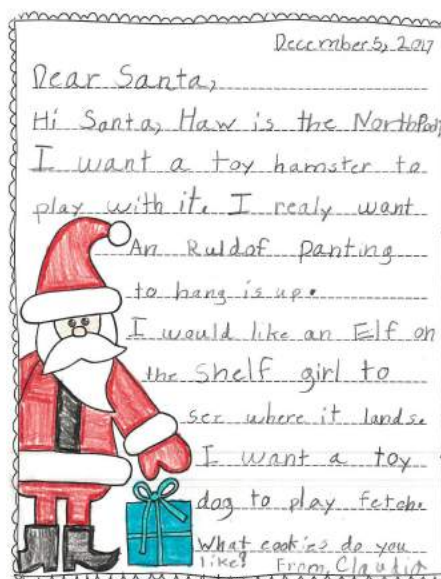 December 5, 2017
Dear Santa,
Hi Santa, Haw is the North
I want a toy hamster to
play with it. I realy want
An Ruldof panting
to hang is up.
I would like an Elf on
the shelf girl to
see where it lands.
I want a toy
dog to play fetch.
What cookies do you
like? From, Claudia